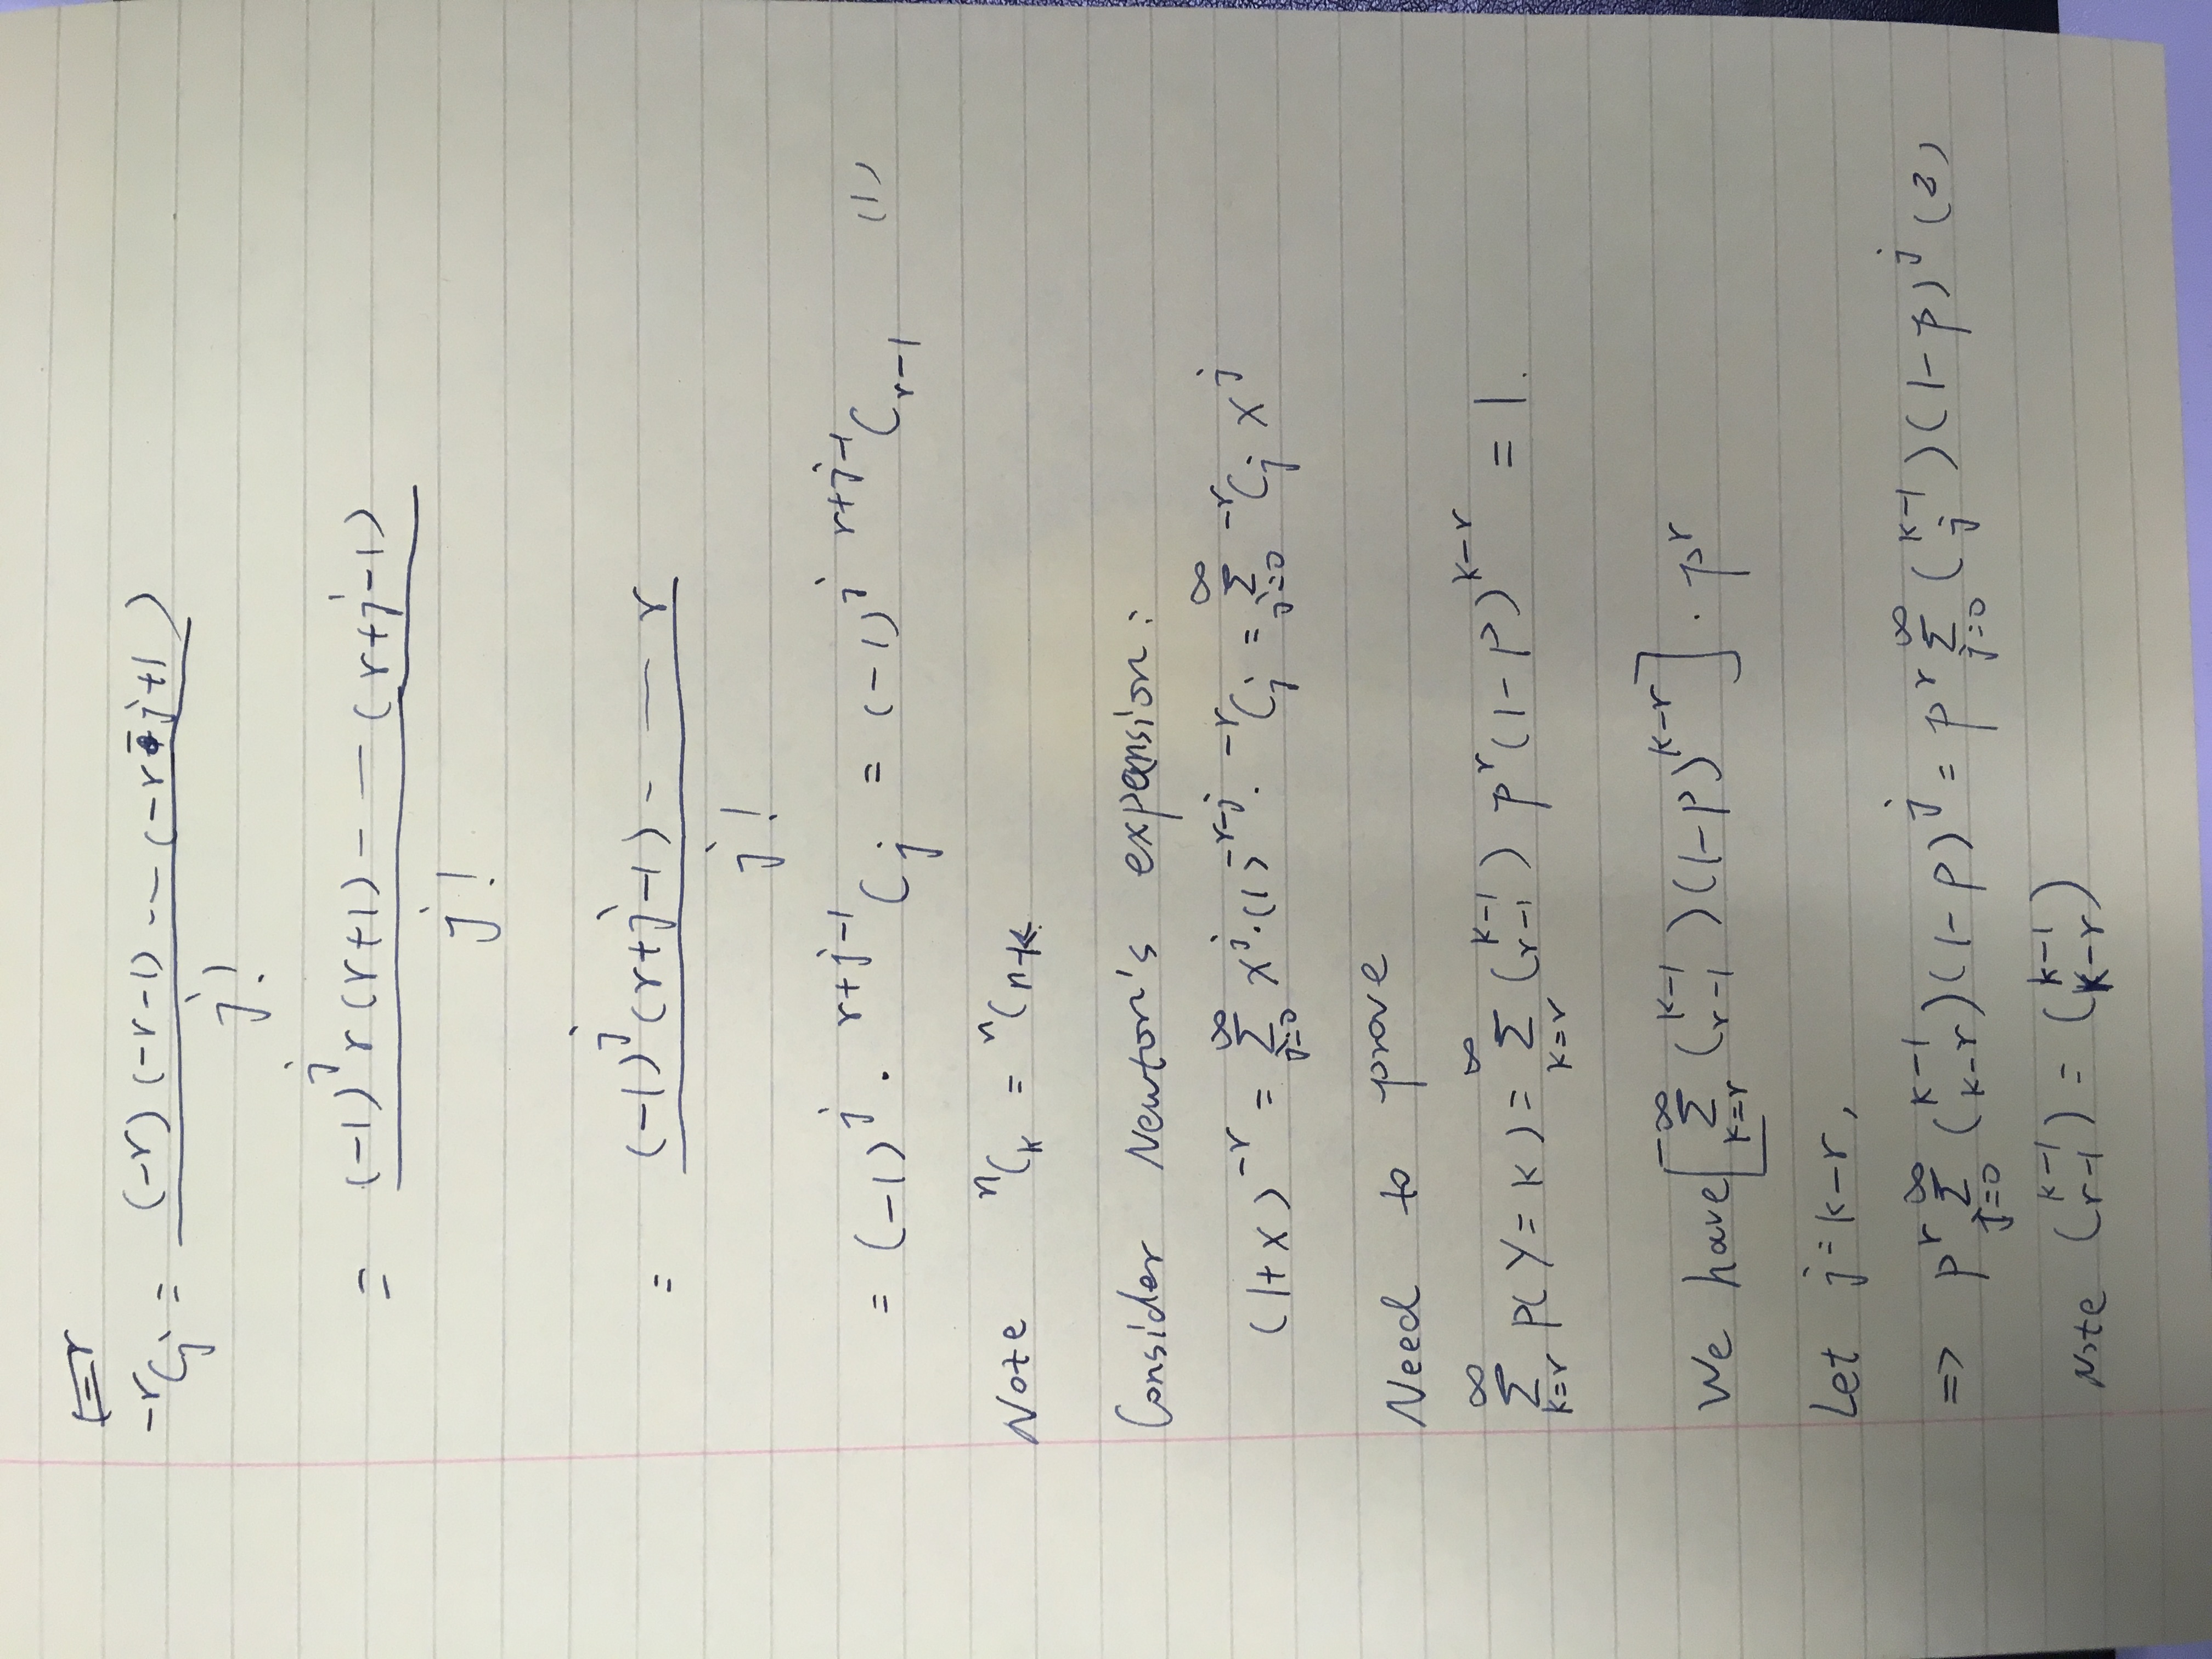 ⁻ʳCⱼ = (-r)(-r-1) -- (-r-j+1) / j!
= (-1)^j r(r+1) - — (r+j-1) / j!
= (-1)^j (r+j-1) - — r / j!
= (-1)^j · ^{r+j-1}C_j = (-1)^j ^{r+j-1}C_{r-1} (1)
Note ^nC_k = ^nC_{n-k}
Consider Newton's expansion:
(1+x)^{-r} = ∑_{j=0}^{∞} x^j·(1)^{-r-j}· ^{-r}C_j = ∑_{j=0}^{∞} ^{-r}C_j x^j
Need to prove
∑_{k=r}^{∞} p(Y=k) = ∑_{k=r}^{∞} (k-1 r-1) p^r(1-p)^{k-r} = 1.
We have [∑_{k=r}^{∞} (k-1 r-1)(1-p)^{k-r}] · p^r
Let j=k-r,
=> p^r ∑_{j=0}^{∞} (k-1 k-r)(1-p)^j = p^r ∑_{j=0}^{∞} (k-1 j)(1-p)^j (2)
Note (k-1 r-1) = (k-1 k-r)